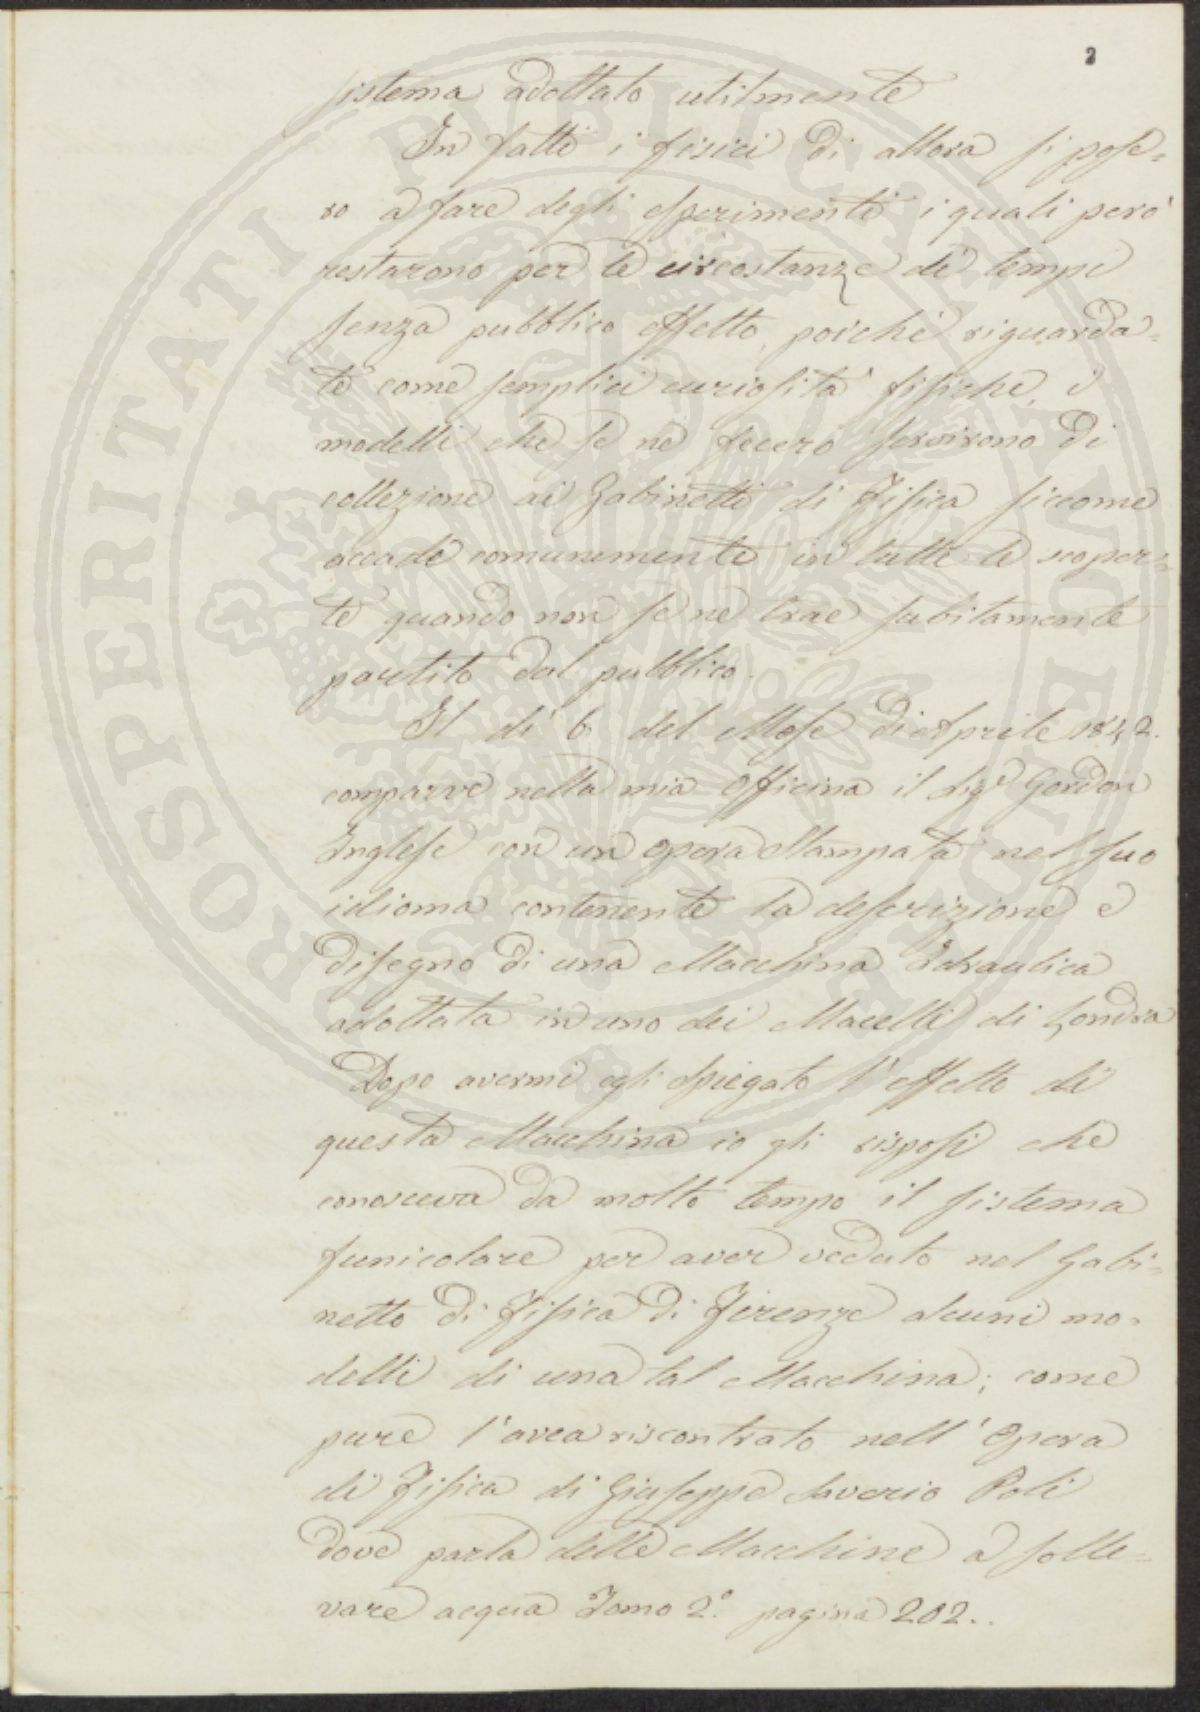 2
sistema adottato utilmente
In fatti i fisici di allora si pose-
ro a fare degli esperimenti i quali però
restarono per le circostanze de' tempi
senza pubblico effetto, poiché riguarda-
te come semplici curiosità fisiche, i
modelli che se ne fecero servirono di
collezione ai Gabinetti di Fisica siccome
accade comunemente in tutte le scoper-
te quando non se ne trae subitamente
partito dal pubblico.
Il dì 6 del Mese di Aprile 1842.
comparve nella mia Officina il Sigr. Gordon
Inglese con un opera stampata nel suo
idioma contenente la descrizione e
disegno di una Macchina Idraulica
adottata in uno dei Macelli di Londra
Dopo avermi egli spiegato l'effetto di
questa Macchina io gli risposi che
conosceva da molto tempo il sistema
funicolare per aver veduto nel Gabi-
netto di Fisica di Firenze alcuni mo-
delli di una tal Macchina; come
pure l'avea riscontrato nell'Opera
di Fisica di Giuseppe Saverio Poli
dove parla delle Macchine a solle-
vare acqua Tomo 2.º pagina 202..
PROSPERITATI PUBLICAE AUGENDAE